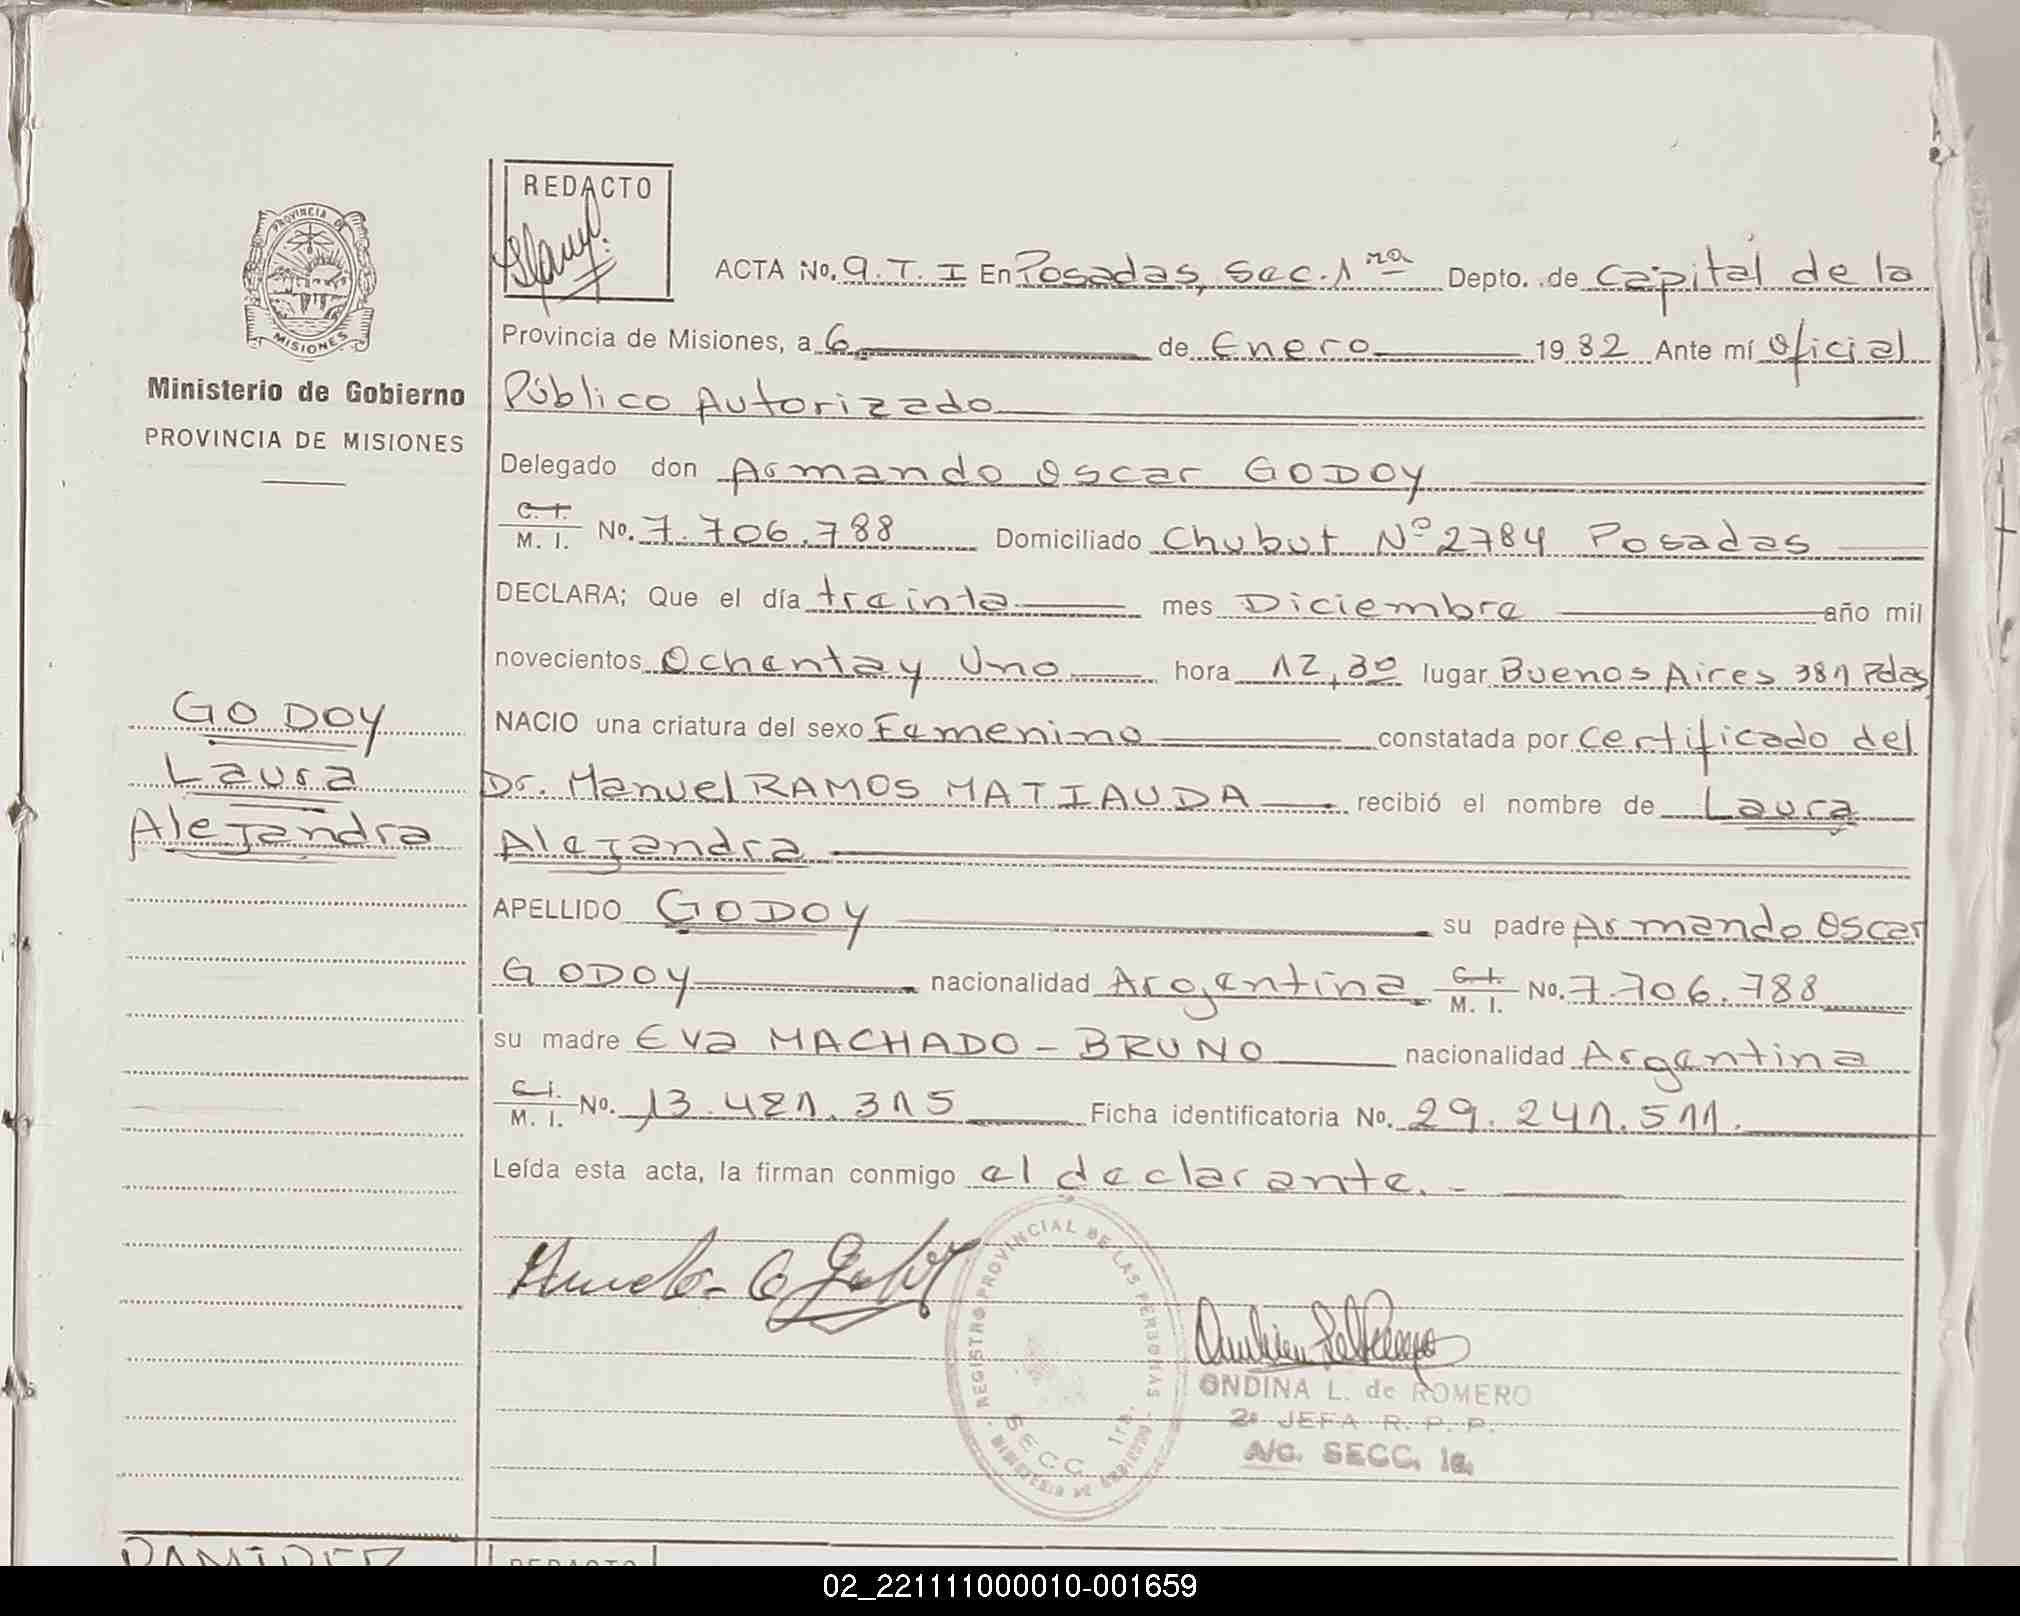 PROVINCIA DE
MISIONES
Ministerio de Gobierno
PROVINCIA DE MISIONES
GODOY
Laura
Alejandra
REDACTO
ACTA No. 9. T. I En Posadas, Sec. 1ra Depto. de Capital de la
Provincia de Misiones, a 6 de Enero 1982 Ante mí Oficial
Público Autorizado
Delegado don Armando Oscar GODOY
C. I.
M. I. No. 7.706.788 Domiciliado Chubut Nº 2784 Posadas
DECLARA; Que el día treinta mes Diciembre año mil
novecientos Ochenta y Uno hora 12,30 lugar Buenos Aires 381 Pdas
NACIO una criatura del sexo Femenino constatada por certificado del
Dr. Manuel RAMOS MATIAUDA recibió el nombre de Laura
Alejandra
APELLIDO GODOY su padre Armando Oscar
GODOY nacionalidad Argentina C. I. M. I. No. 7.706.788
su madre Eva MACHADO - BRUNO nacionalidad Argentina
C. I.
M. I. No. 13.421.315 Ficha identificatoria No. 29.241.511.
Leída esta acta, la firman conmigo el declarante. -
REGISTRO PROVINCIAL DE LAS PERSONAS
SECC. 1ra.
MINISTERIO DE GOBIERNO
ONDINA L. de ROMERO
2a JEFA R. P. P.
A/C. SECC. 1a.
REDACTO
02_221111000010-001659